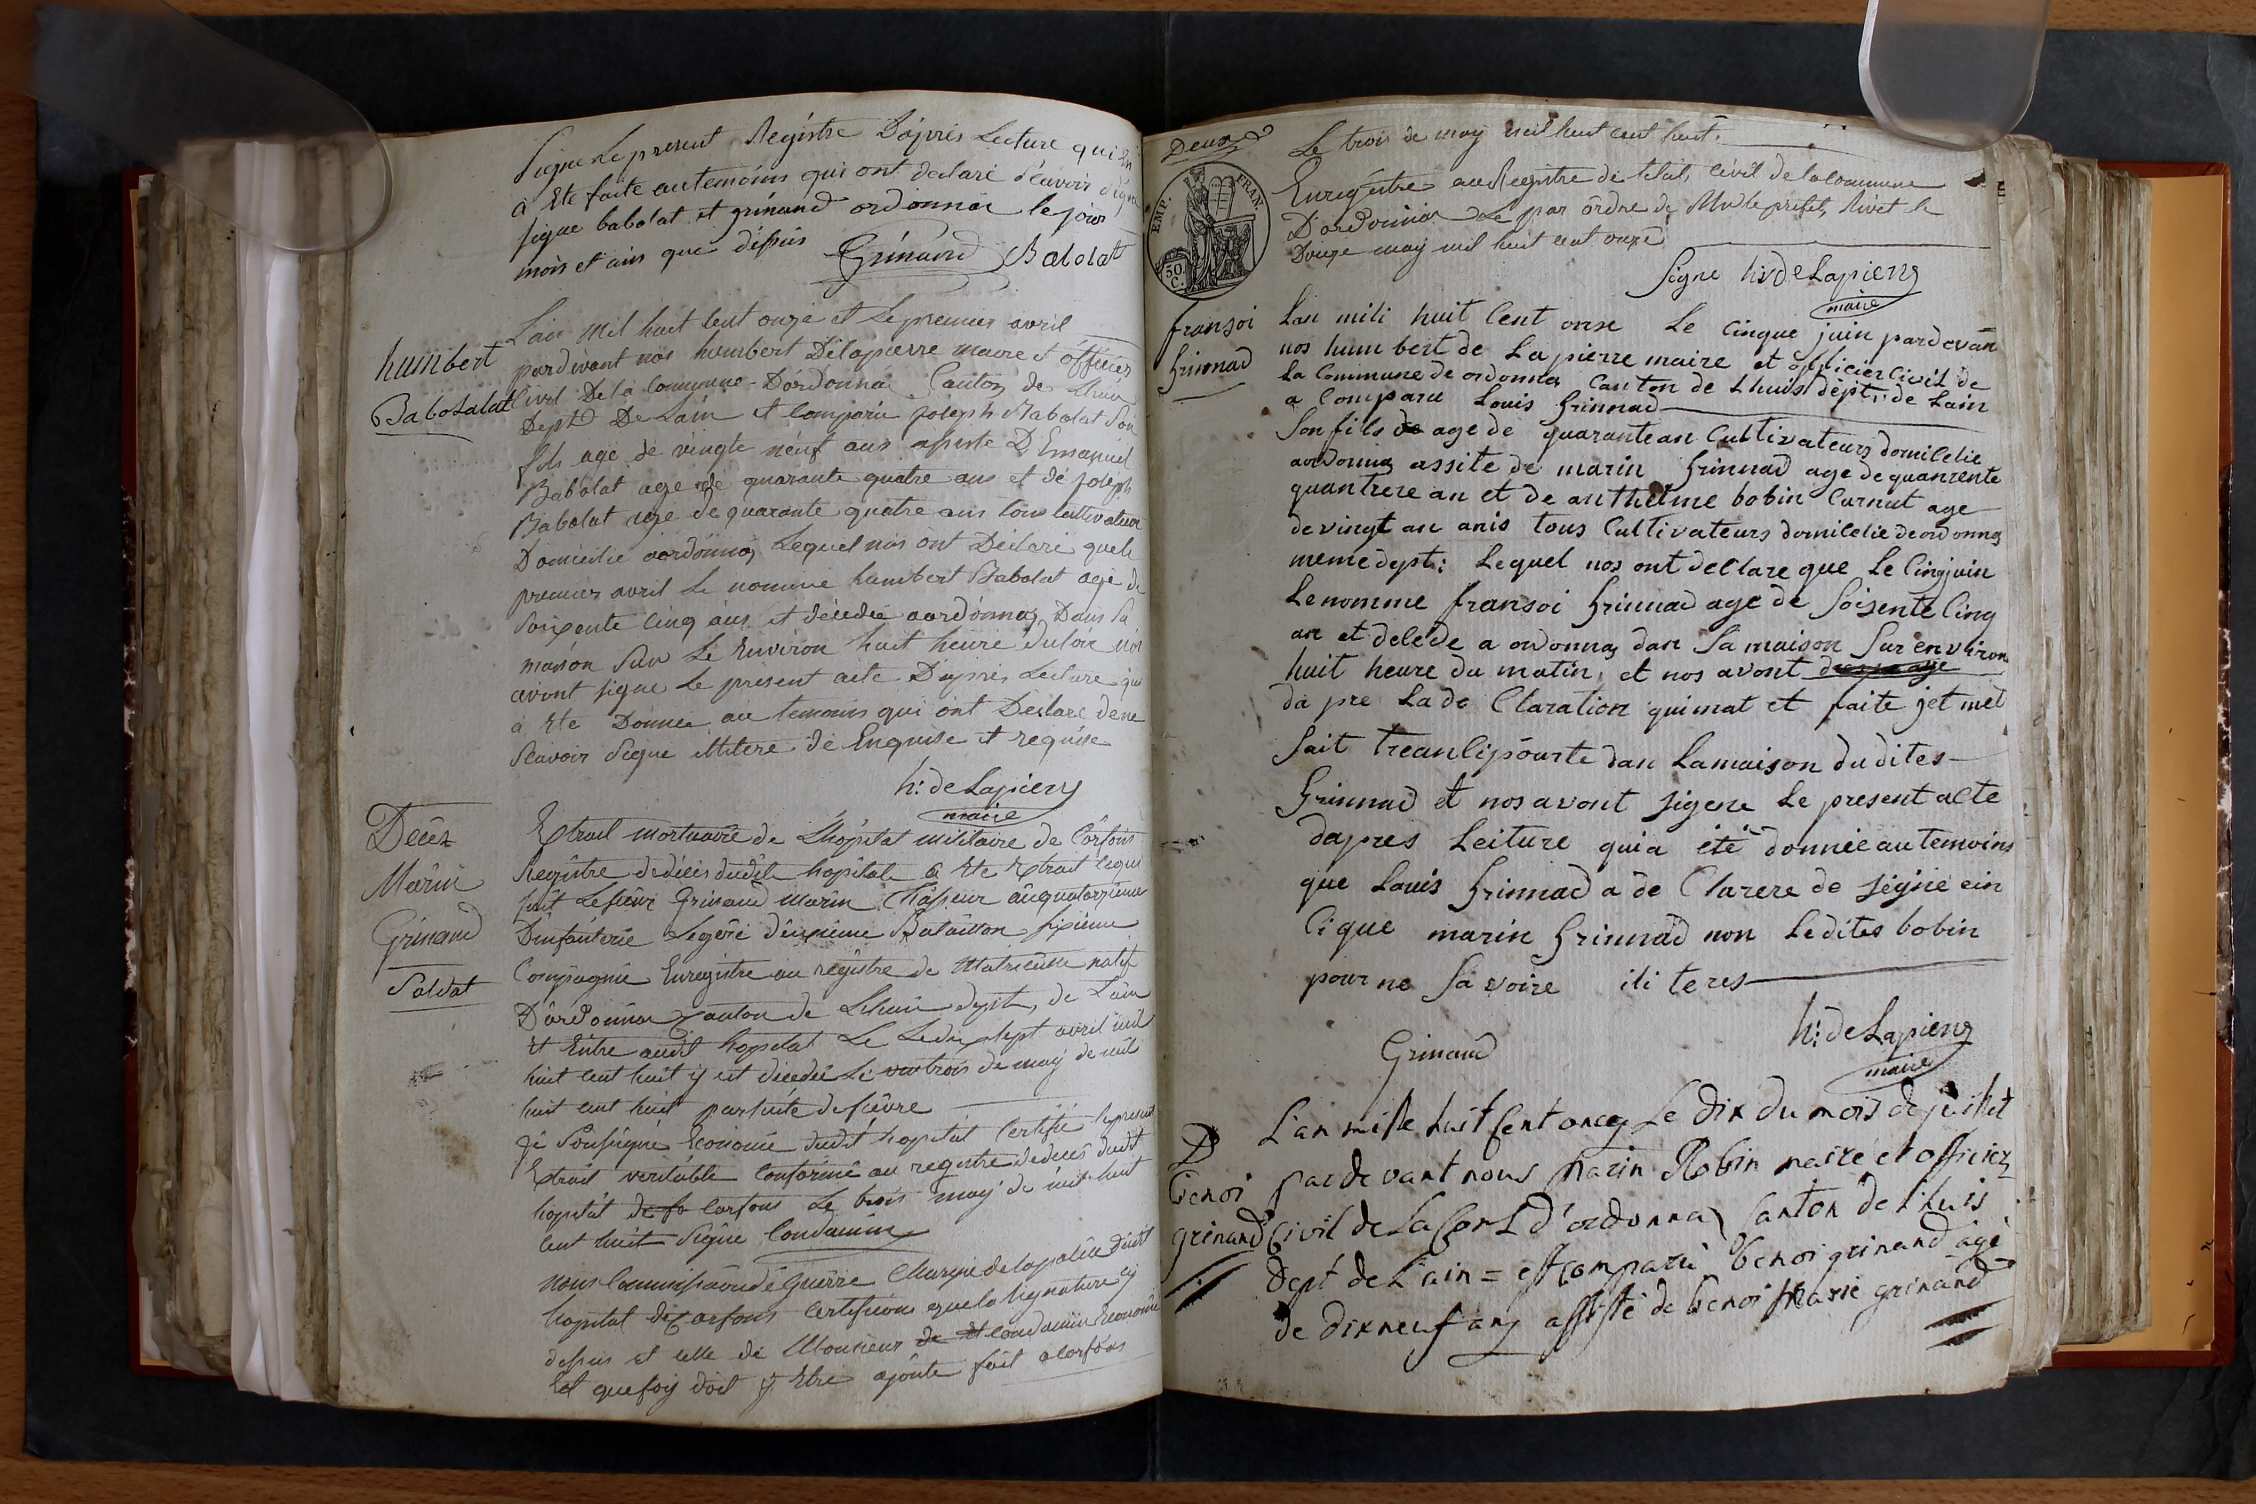 Signe Le present Registre D'après Lecture qui En
à Ete faite au temoins qui ont declaré scavoir signe
signe babolat et grinand ordonnas le jour
mois et ans que dessus
Grinand Babolat
humbert
Babolalat
L'ain Mil huit Cent onze et Le premier avril
pardevant nos humbert Delapierre maire et officier
Civil De la Commune D'ordonnas Canton de Lhuis
Dept De Lain et Comparu joseph Babolat Son
fils age de vingte neuf ans assiste D'Emanuel
Babolat age de quarante quatre ans et de joseph
Babolat age de quarante quatre ans tous Cultivateur
Domicilie aordonnas Lequel nos ont Declaré que le
premier avril Le nomme humbert Babolat age de
Soixente Cinq ans et décédée aordonnas Dans Sa
maison Sur Le Environ huit heure du soir nos
avont signe Le present acte D'après Lecture qui
à Ete Donnée au temoins qui ont Déclaré de ne
Scavoir Signe illitere de Enquise et requise
h: de Lapierre
maire
Décèz
Marin
Grinand
Soldat
Extrait mortuaire de L'hopital militaire de
Registre de décès dudit hopital à Ete Extrait Ceque
suit Le sieur Grinand Marin Chasseur au quatorzieme
D'infanterie Legère deuxieme Bataillon sixieme
Compagnie Enregistre au registre de Matricule natif
D'ordonnas Canton de Lhuis dept de L'ain
Et Entre audit hopital Le Ledix sept avril mil
huit cent huit y est décédé Le trois de may de mil
huit cent huit par suite de fievre
Je Soussigné Econome dudit hopital Certifié le present
Extrait veritable Conforme au registre de décès dudit
hopital de Le trois may de mil huit
cent huit Signe Condamin
nous Commissaire de Guerre Charge de la police dudit
hopital de Certifions que la signature cy
dessus et celle de Monsieur de Condamin Econome
Et que foy doit y Etre ajoute fait a
Deux
Le trois de may mil huit cent huit
EMP. FRAN.
50
C.
Enregistre au Registre de l'etat, Civil de la Commune
D'ordonnas Le par ordre de Mr le prefet, Rivet le
Douze may mil huit cent onze
Signe h: de Lapierre
maire
fransoi
Grinnad
Lan mili huit Cent onse Le Cinque juin pardevan
nos humbert de Lapierre maire et officier Civil de
La Commune de ordonnas Canton de Lhuis dept: de Lain
a Comparu Louis Grinnad
Son fils de age de quarante an Cultivateurs domicilie
aordonnas assite de marin Grinnad age de quanrente
quantrere an et de anthelme bobin Curnut age
de vingt an anis tous Cultivateurs domicilie de ordonnas
meme dept: Lequel nos ont declare que Le Cinq juin
Le nomme fransoi Grinnad age de Soisente Cinq
an et delede a ordonnas dan Sa maison Sur environ
huit heure du matin, et nos avont
da pre La de Claration qui mat et faite jet met
Sait treanlipourte dan La maison du dites
Grinnad et nos avont signe Le present acte
dapres Leiture qui a été donnée au temoins
que Louis Grinnad a de Clarere de signe ein
Ci que marin Grinnad non Le dites bobin
pour ne Savoire iliteres
Grinand
h: de Lapierre
maire
D
benoi
grinand
L'an mille huit Cent once Le dix du mois de juillet
pardevant nous marin Robin maire et officier
Civil de La Com d'ordonnas Canton de Lhuis
dept de L'ain = est comparu benoi grinand agé
de dixneuf ans assisté de benoi marie grinand